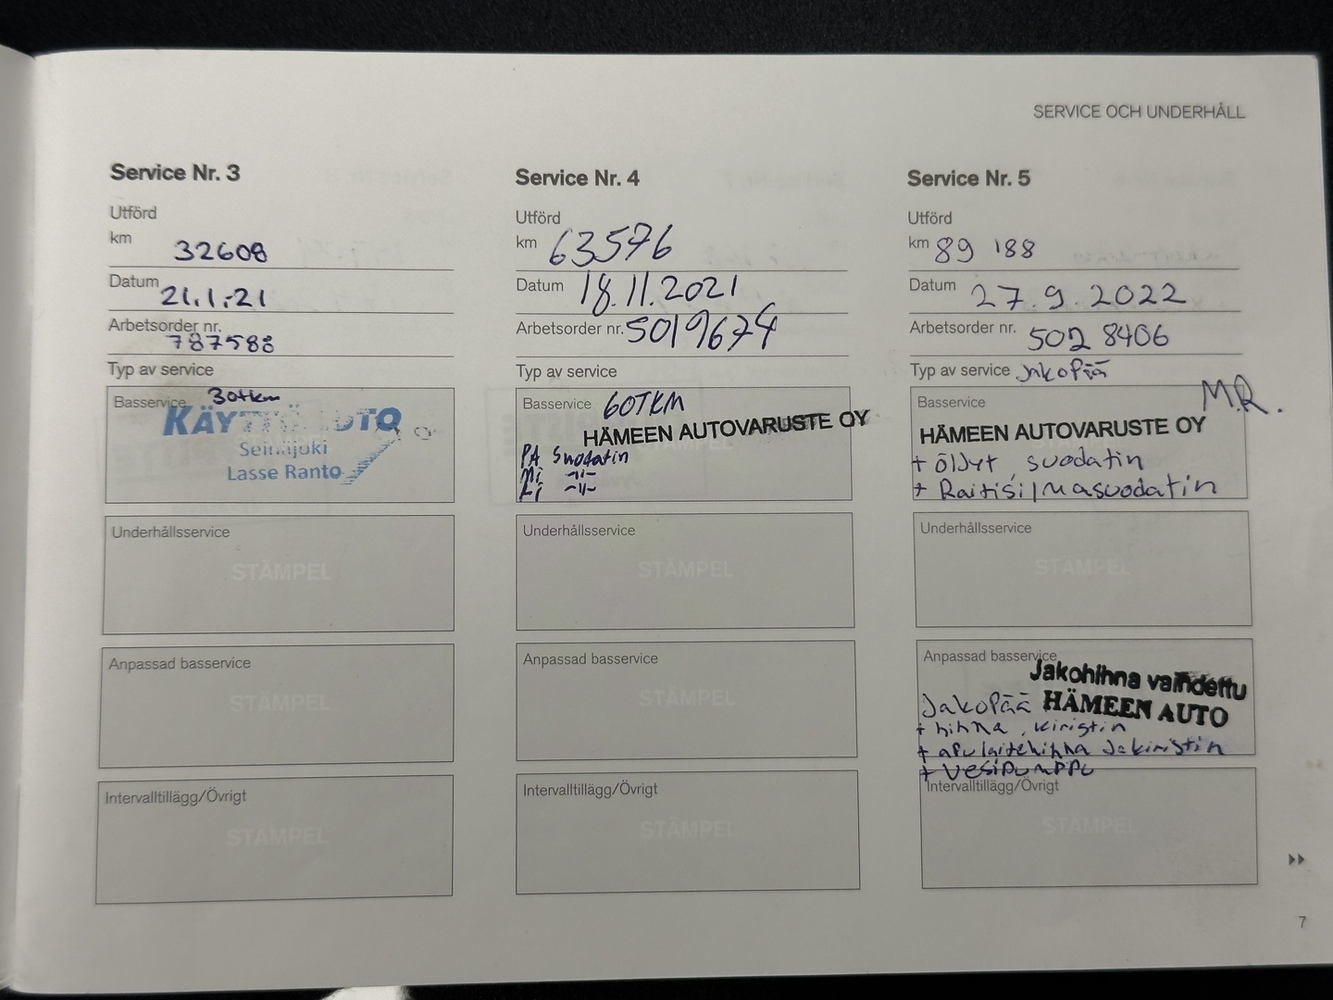 SERVICE OCH UNDERHÅLL
Service Nr. 3
Utförd
km 32608
Datum 21.1.-21
Arbetsorder nr.
787588
Typ av service
Basservice 30tkm
KÄYTTÖAUTO
Seinäjoki
Lasse Ranto
Underhållsservice
STÄMPEL
Anpassad basservice
STÄMPEL
Intervalltillägg/Övrigt
STÄMPEL
Service Nr. 4
Utförd
km 63576
Datum 18.11.2021
Arbetsorder nr. 5019674
Typ av service
Basservice 60TKM
HÄMEEN AUTOVARUSTE OY
PA Suodatin
Mi -11-
Ki -11-
Underhållsservice
STÄMPEL
Anpassad basservice
STÄMPEL
Intervalltillägg/Övrigt
STÄMPEL
Service Nr. 5
Utförd
km 89 188
Datum 27.9.2022
Arbetsorder nr. 502 8406
Typ av service Jakopää
Basservice M.R.
HÄMEEN AUTOVARUSTE OY
+ öljyt, suodatin
+ Raitisilmasuodatin
Underhållsservice
STÄMPEL
Anpassad basservice
Jakohihna vaihdettu
Jakopää HÄMEEN AUTO
+ hihna, kiristin
+ apulaitehihna Jakiristin
+ vesipumppu
Intervalltillägg/Övrigt
STÄMPEL
7